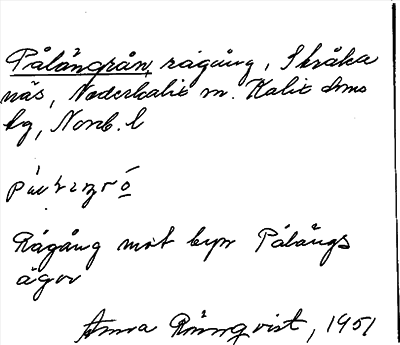 Pålängrån, rågång, Skråka
näs, Nederkalix sn. Kalix doms
hg, Norrb. l
Rågång mot byn Pålängs
ägor
Anna Rönnqvist, 1951